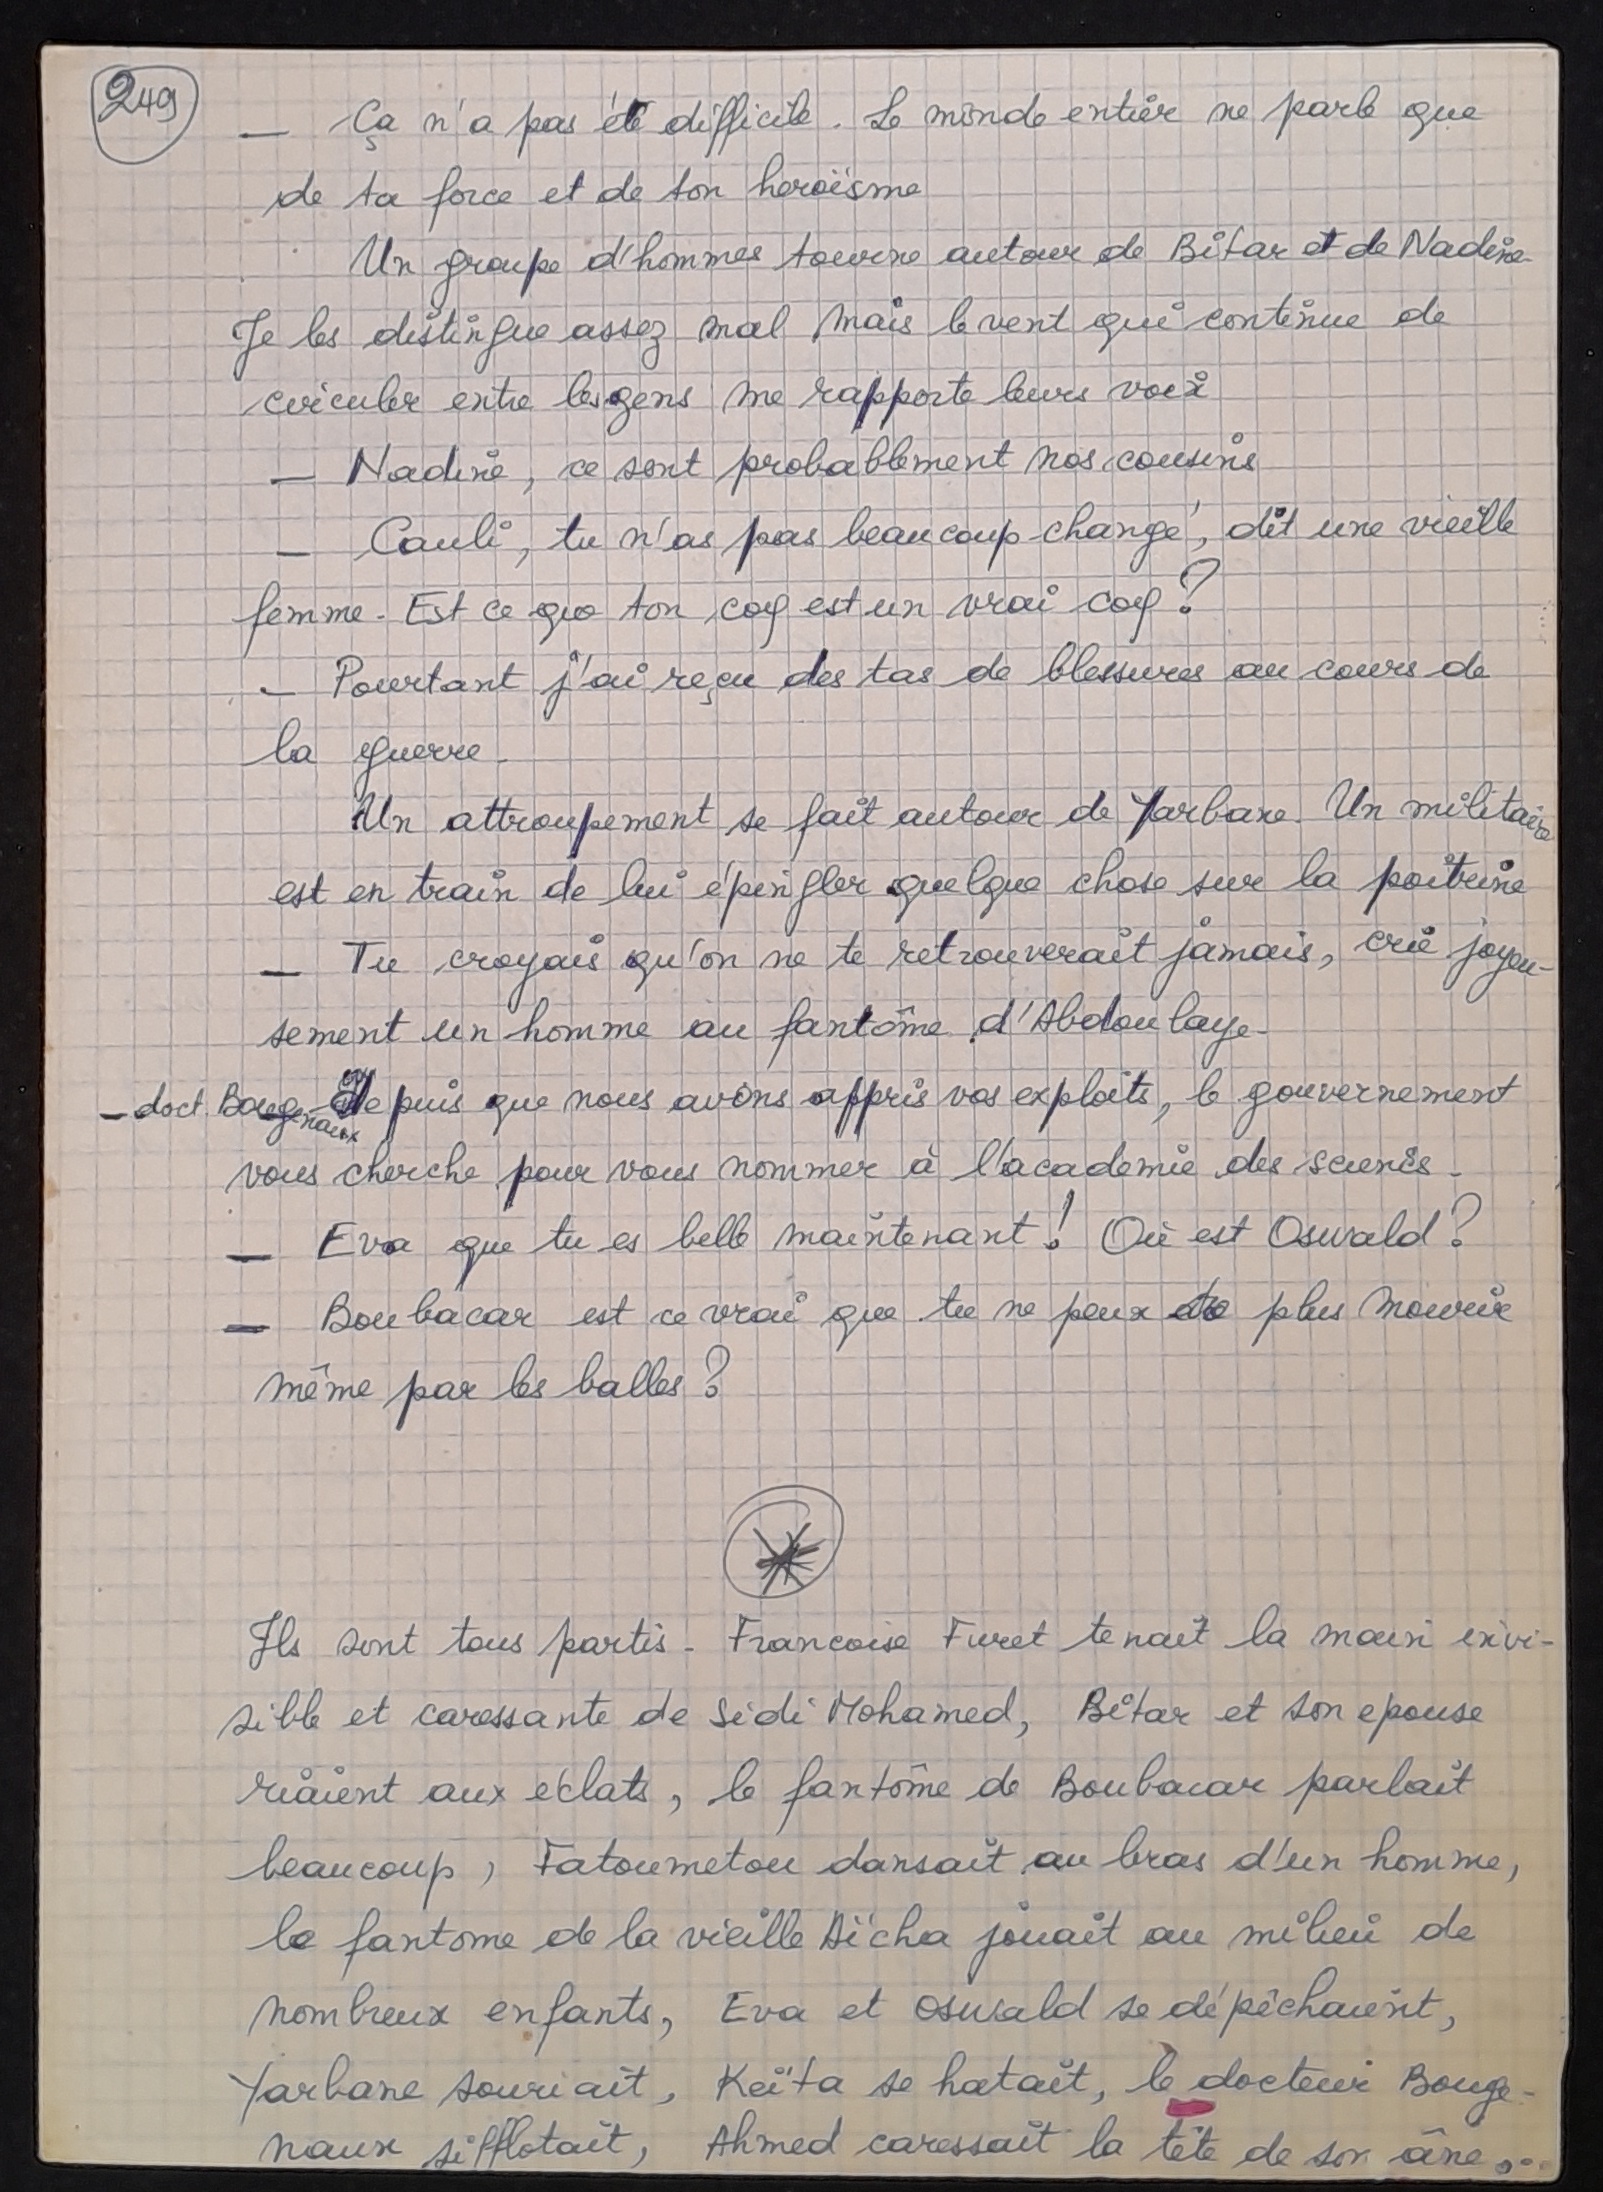 249
— Ça n'a pas été difficile. Le monde entier ne parle que
de ta force et de ton heroïsme
Un groupe d'hommes tourne autour de Bitar et de Nadine.
Je les distingue assez mal mais le vent qui continue de
circuler entre les gens me rapporte leurs voix
— Nadine, ce sont probablement nos cousins
— Cauli, tu n'as pas beaucoup changé, dit une vieille
femme. Est ce que ton coq est un vrai coq ?
— Pourtant j'ai reçu des tas de blessures au cours de
la guerre.
Un attroupement se fait autour de Yarbane. Un militaire
est en train de lui épingler quelque chose sur la poitrine
— Tu croyais qu'on ne te retrouverait jamais, crie joyeu-
sement un homme au fantôme d'Abdoulaye.
— doct. Bougenaux depuis que nous avons appris vos exploits, le gouvernement
vous cherche pour vous nommer à l'academie des sciences.
— Eva que tu es belle maintenant ! Où est Oswald ?
— Boubacar est ce vrai que tu ne peux plus mourir
même par les balles ?
Ils sont tous partis. Francoise Furet tenait la main invi-
sible et caressante de Sidi Mohamed, Bitar et son epouse
riaient aux éclats, le fantôme de Boubacar parlait
beaucoup, Fatoumetou dansait au bras d'un homme,
le fantome de la vieille Aïcha jouait au milieu de
nombreux enfants, Eva et Oswald se dépêchaient,
Yarbane souriait, Keïta se hatait, le docteur Bouge-
naux sifflotait, Ahmed caressait la tête de son âne...